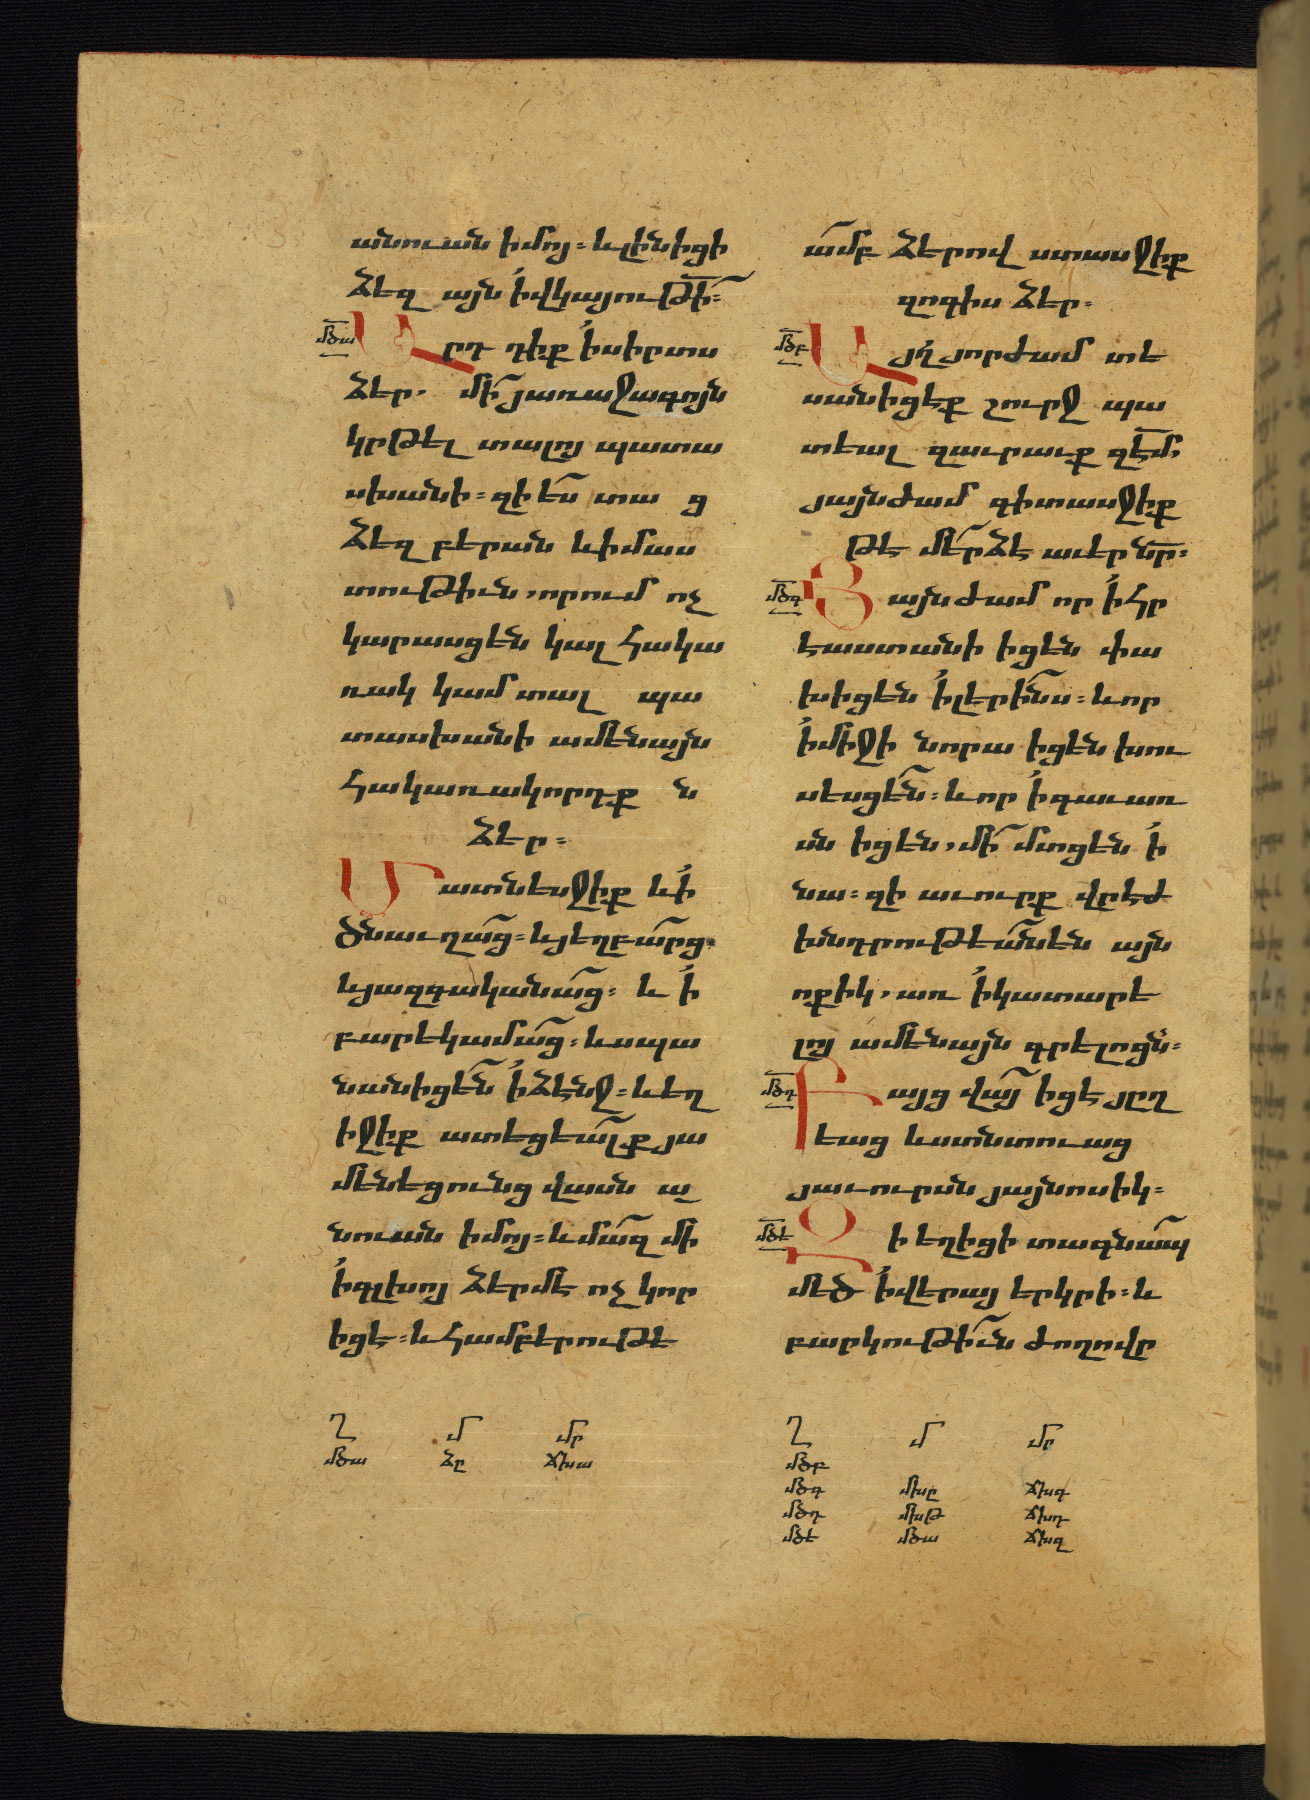 անուան իմոյ։ և լինիցի
ձեզ այն ի վկայութի՛։
մծա
Արդ դիք ի սիրտս
ձեր. մի՛ յառաջագոյն
կրթել տալոյ պատա
սխանի։ զի ես տաց
ձեզ բերան և իմաս
տութիւն, որում ոչ
կարասցեն կալ հակա
ռակ կամ տալ պա
տասխանի ամենայն
հակառակորդք ն
ձեր։
Մատնեսջիք և ի
ծնաւղաց։ և յեղբարց.
և յազգականաց։ և ի
բարեկամաց։ և սպա
նանիցեն ի ձէնջ։ և եղ
իջիք ատեցեալք յա
մենեցունց վասն ա
նուան իմոյ։ և մազ մի
ի գլխոյ ձերմէ ոչ կոր
իցէ։ և համբերութե
ամբ ձերով ստասջիք
զոգիս ձեր։
մծբ
Այլ յորժամ տե
սանիցէք շուրջ պա
տեալ զաւրաւք զԷմ.
յայնժամ գիտասջիք
թէ մերձ է աւեր նր։
մծգ
Յայնժամ որ ի հր
էաստանի իցեն փա
խիցեն ի լերինս։ և որ
ի միջի նորա իցեն խու
սեսցեն։ և որ ի գաւառ
սն իցեն, մի՛ մտցեն ի
նա։ զի աւուրք վրէժ
խնդրութեան են այն
ոքիկ, առ ի կատարե
լոյ ամենայն գրելոցն։
մծդ
Բայց վայ իցէ յըղ
եաց և ստնտուաց
յաւուրսն յայնոսիկ։
մծե
Զի եղիցի տագնապ
մեծ ի վերայ երկրի։ և
բարկութիւն ժողովր
Ղ Մ Մր
մծա ձը ճխա
Ղ Մ Մր
մծբ
մծգ մխը ճխգ
մծդ մխթ ճխդ
մծե մծա ճխզ